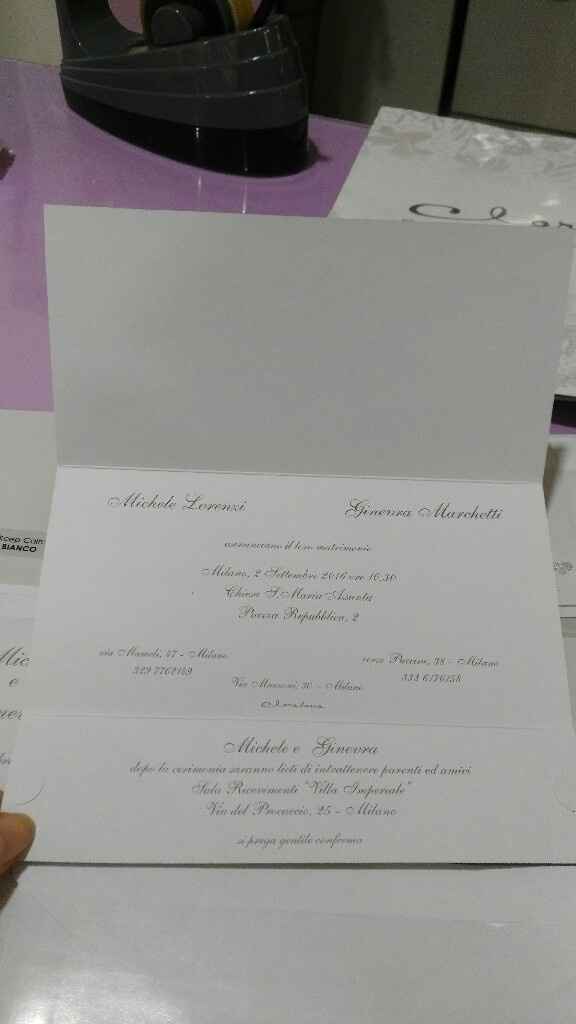 Michele Lorenzi
Ginevra Marchetti
annunciano il loro matrimonio
Milano, 2 Settembre 2016 ore 16,30
Chiesa S. Maria Assunta
Piazza Repubblica, 2
via Mameli, 47 - Milano
329 7762189
corso Puccini, 38 - Milano
Via Manzoni, 30 - Milano
Michele e Ginevra
dopo la cerimonia saranno lieti di intrattenere parenti ed amici
Sala Ricevimenti "Villa Imperiale"
Via del Procaccio, 25 - Milano
si prega gentile conferma
BIANCO
Mic
e